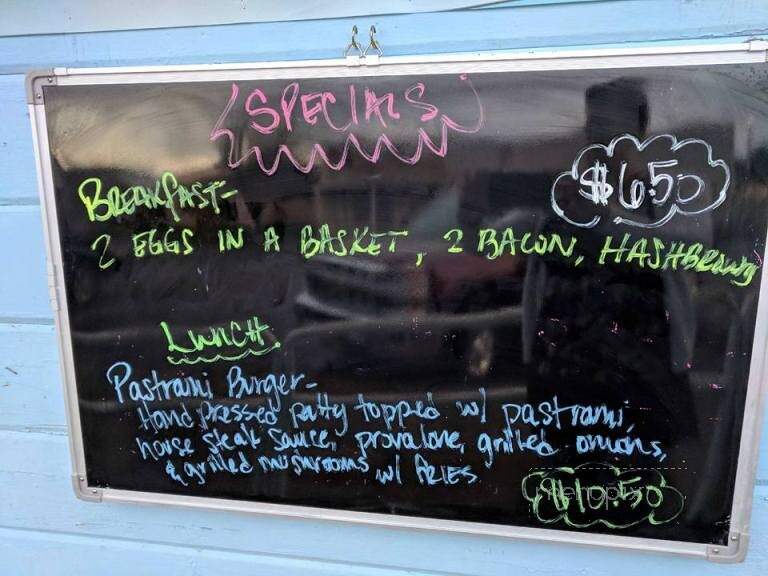 SPECIALS
BREAKFAST-
$6.50
2 EGGS IN A BASKET, 2 BACON, HASHBROWNS
LUNCH
Pastrami Burger-
Hand Pressed patty topped w/ pastrami,
house steak sauce, provalone, grilled onions,
& grilled mushrooms w/ FRIES
$10.50